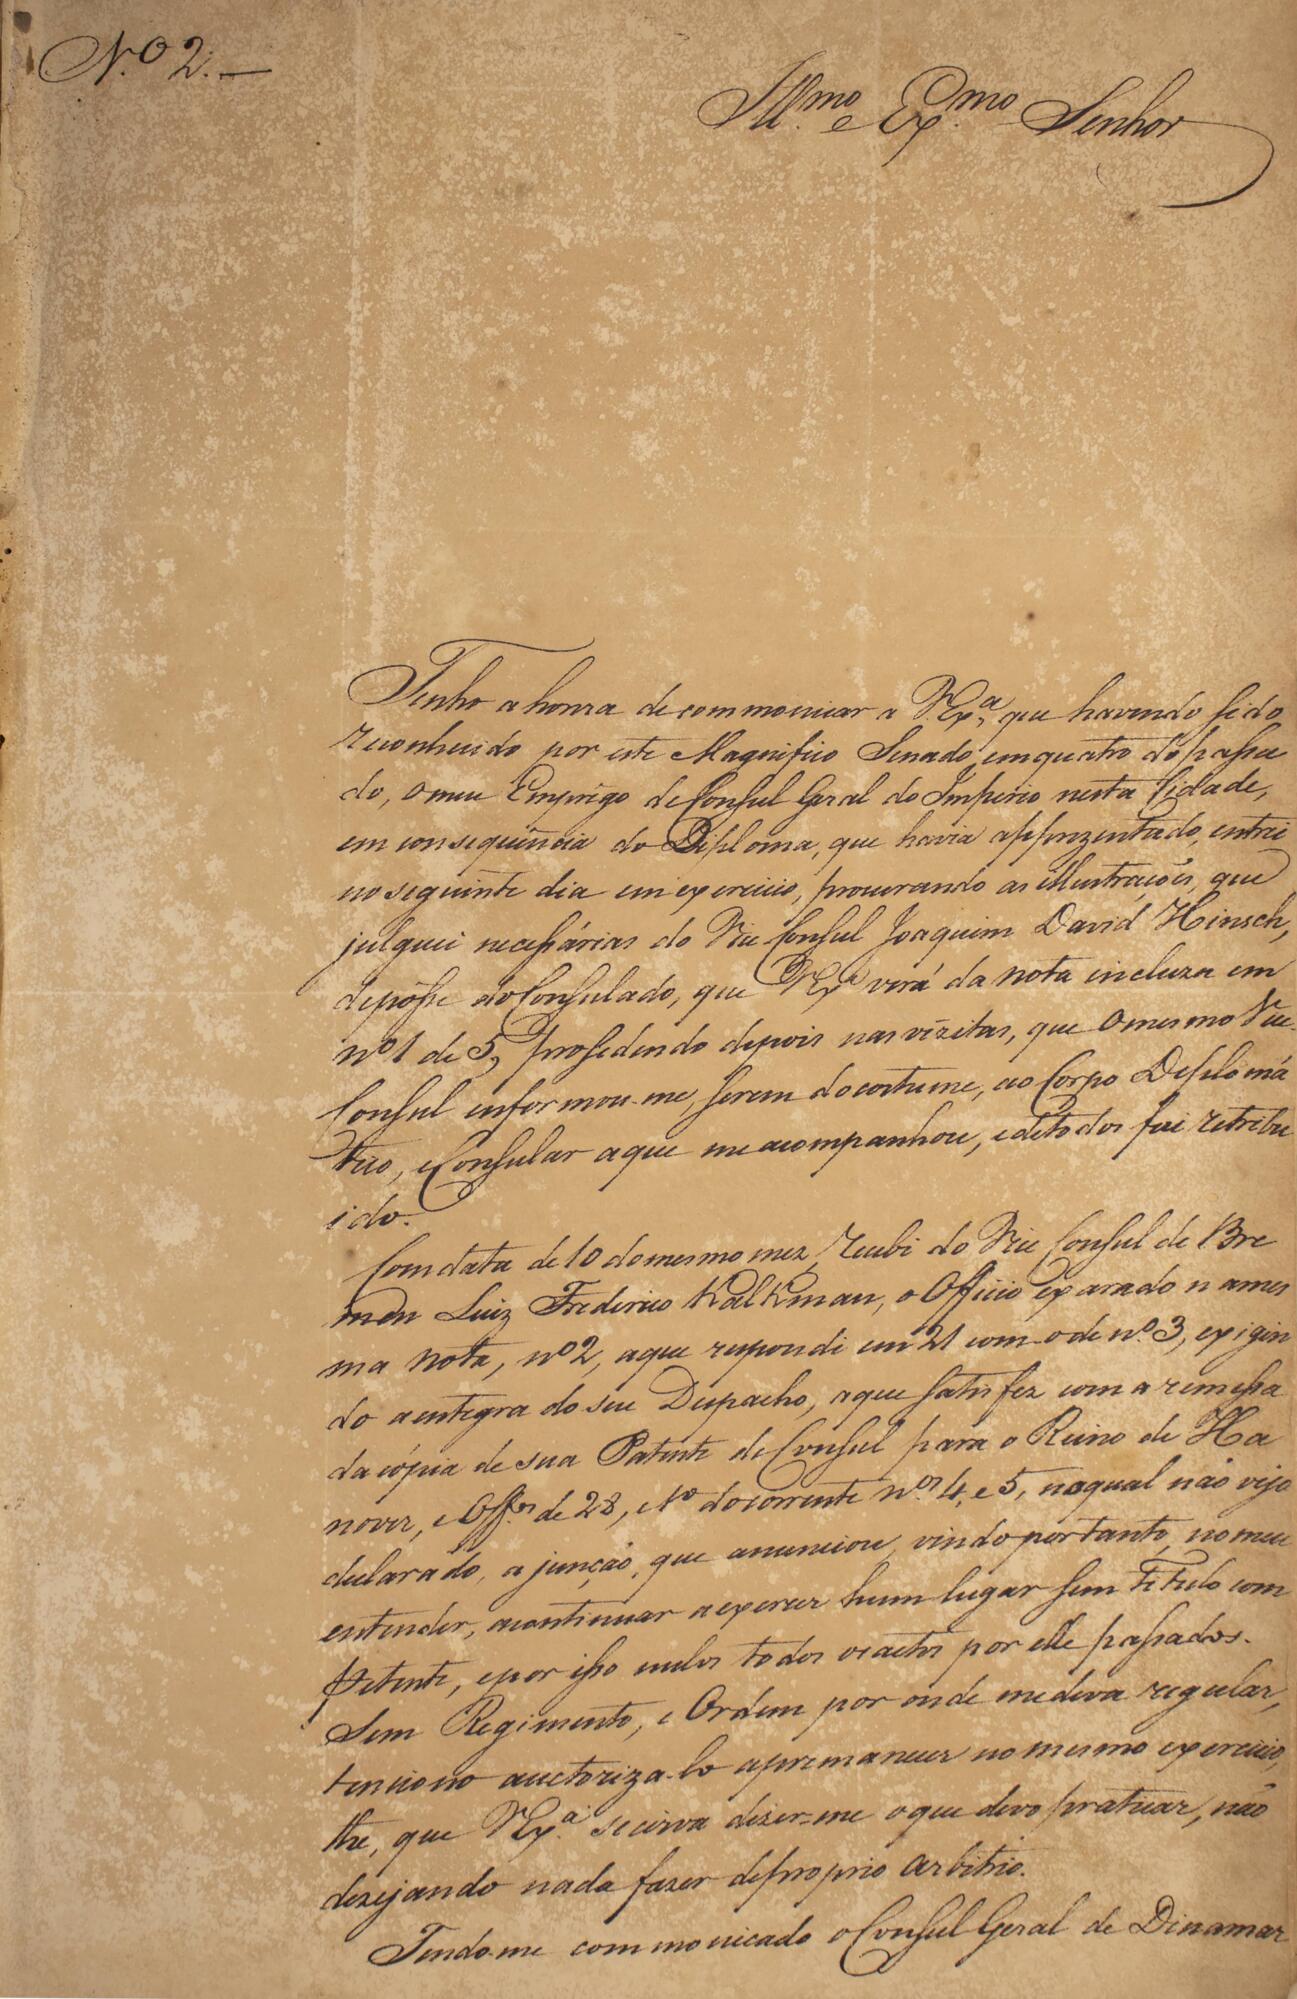 N.o 2.—
Ill.mo e Ex.mo Senhor
Tenho a honra de commonicar a V.Exa, que havendo sido
reconhecido por este Magnifico Senado, em quatro do passa
do, o meu Emprigo de Consul Geral do Imperio nesta Cidade,
em consequencia do Diploma, que havia apprezentado, entrei
no seguinte dia em exercicio, procurando as illustrações, que
julguei necessárias do Vice Consul Joaquim David Hinsch,
de pósse do Consulado, que V.Exa verá da nota incluza em
nº 1 de 5, prosedendo depois nas vizitas, que o mesmo Vice-
Consul enformou-me, serem do costume, ao Corpo Deplomá
tico, e Consular a que me acompanhou, e de todos fui retribu
ido.
Com data de 10 do mesmo mez, recebi do Vice Consul de Bre
men Luiz Frederico Kalkman, o Officio exarado n a mes
ma nota, nº 2, a que respondi em 21 com o de nº 3, exigin
do a entegra do seu Despacho, a que satisfez com a remessa
da cópia de sua Patente de Consul para o Reino de Ha
nover, e Off.os de 28, e 1º do corrente nos 4, e 5, no qual não vejo
declarado, a junção, que anunciou, vindo portanto, no meu
entender, a continuar a exercer hum lugar sem titulo com
petente, e por isso nulos todos os actos por elle passados.
Sem Regimento, e Ordem por onde me deva regular,
tenciono auctoriza-lo a premanecer no mesmo exercicio,
the, que V.Exa se cirva dizer-me o que devo praticar, não
dezejando nada fazer de proprio arbitrio.
Tendo-me commonicado o Consul Geral de Dinamar